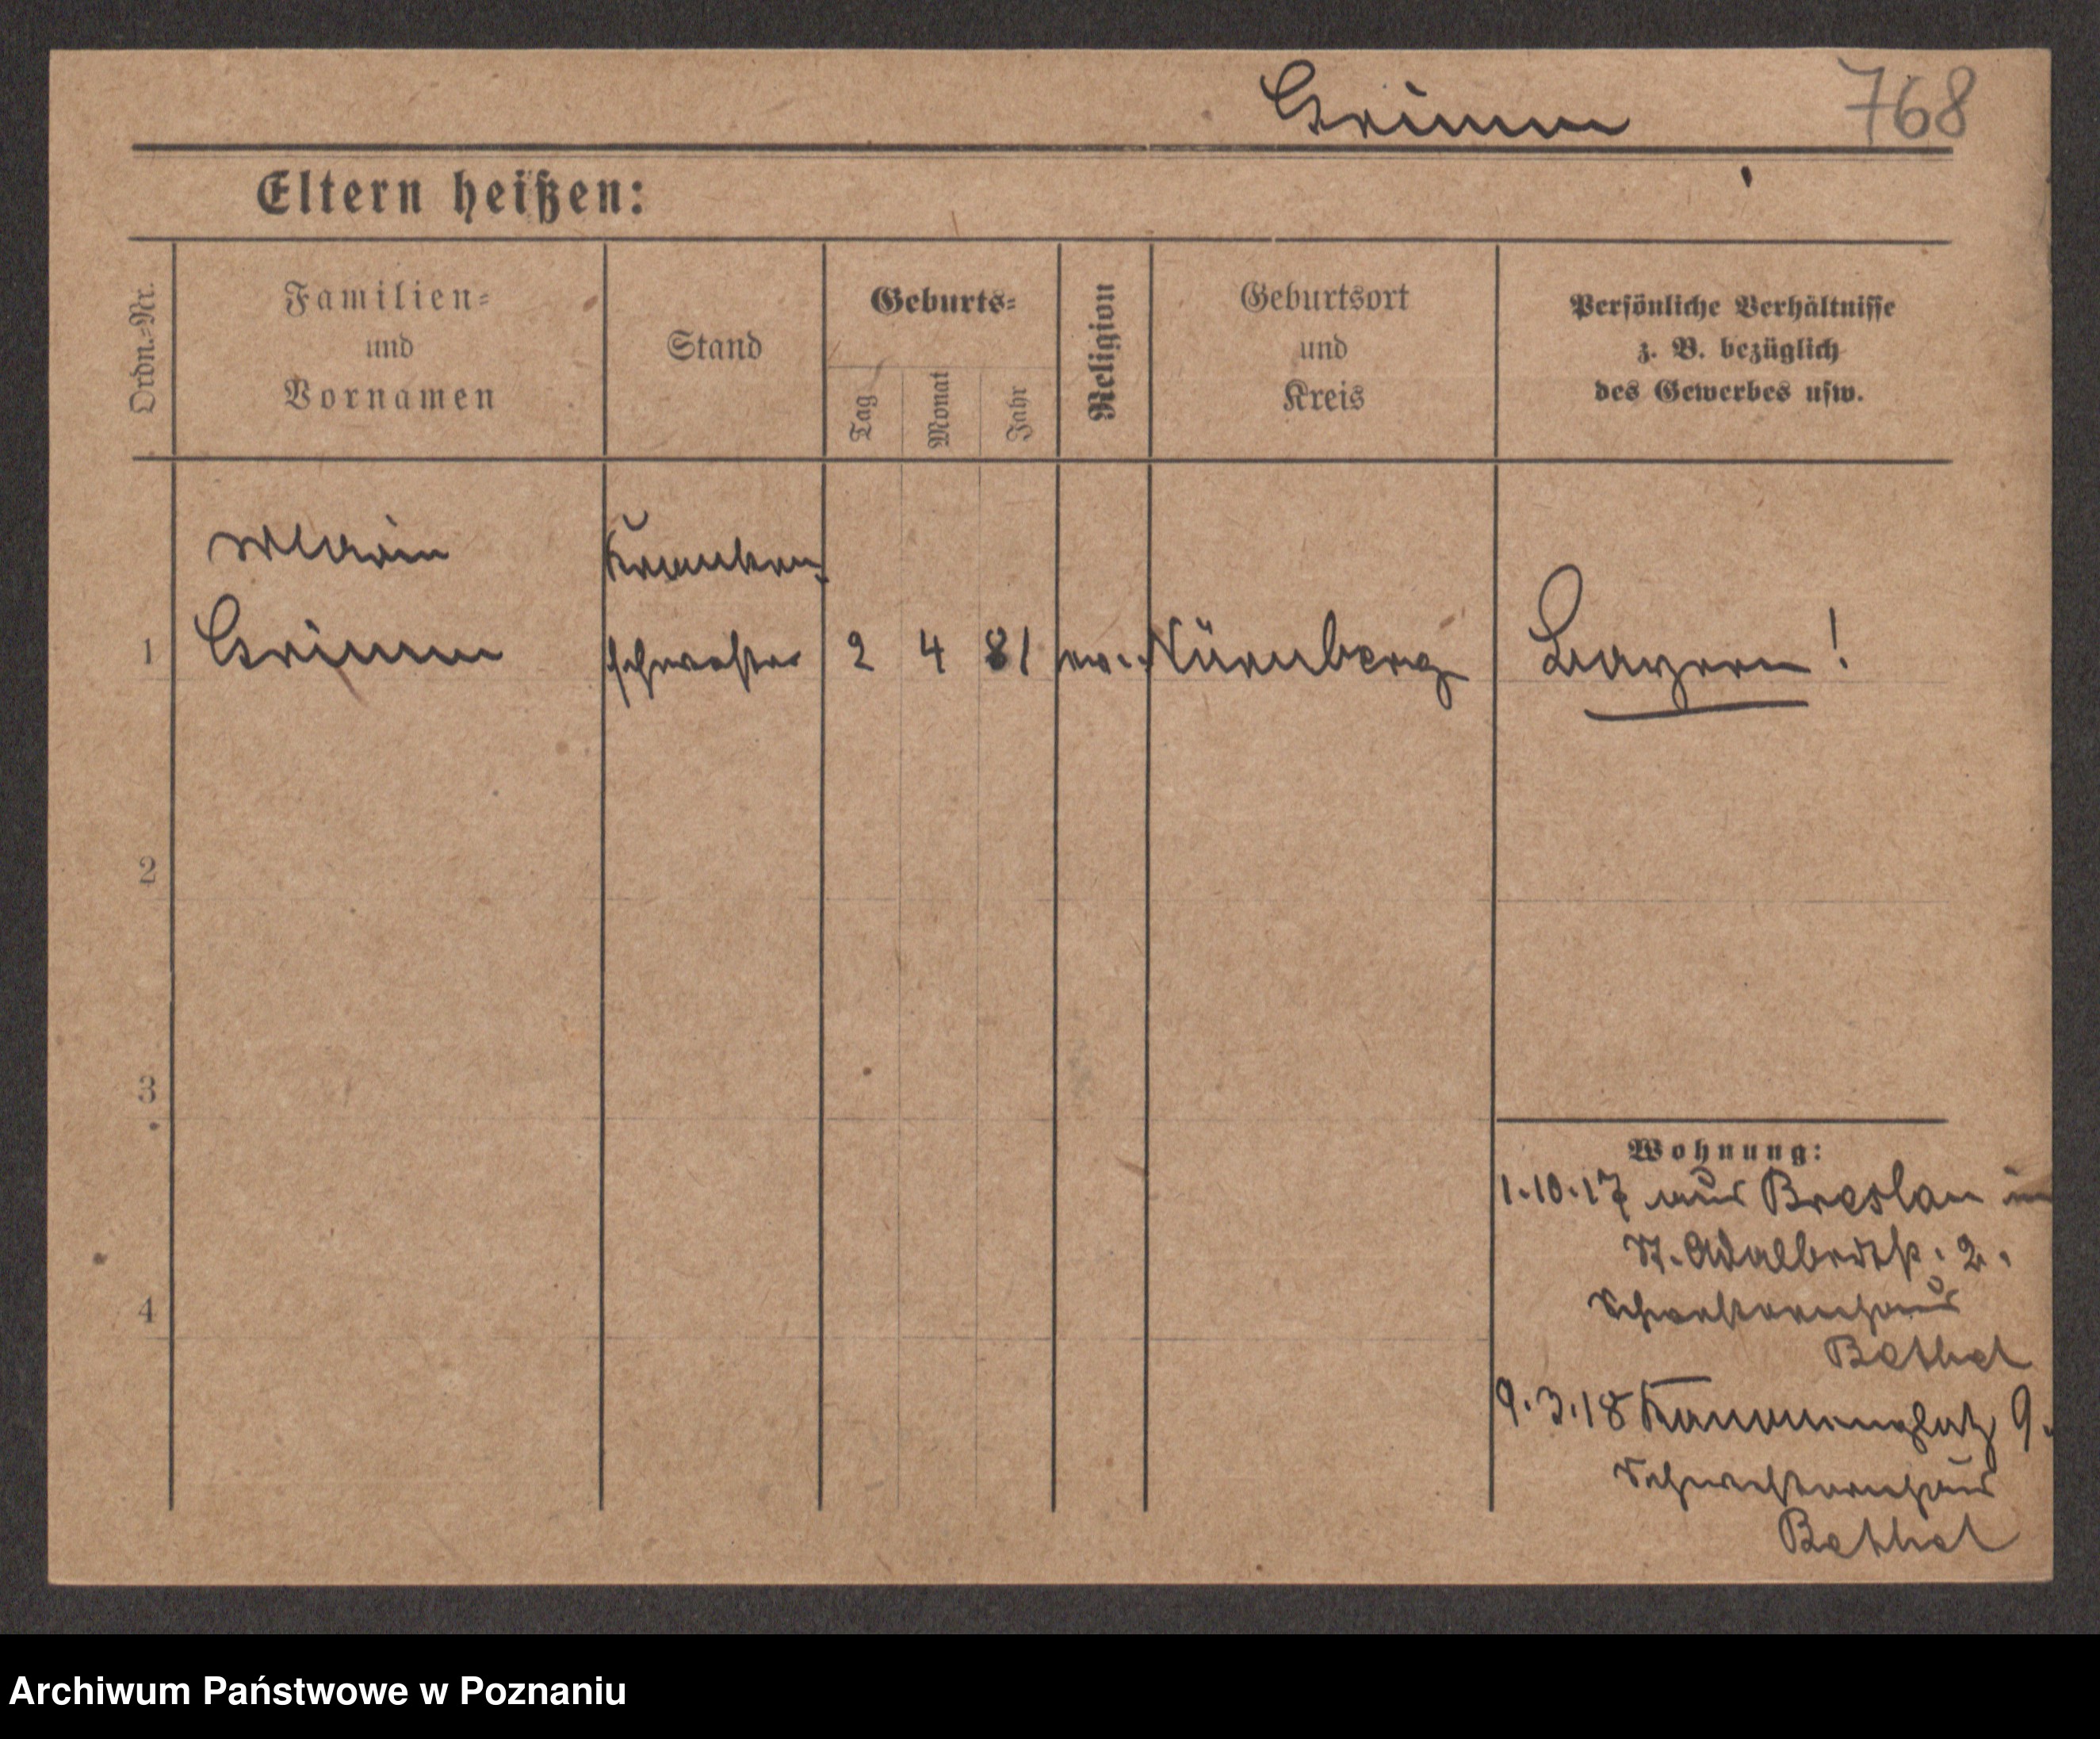 Grimm 768
Eltern heißen:
Ordn.-Nr.
Familien-
und
Vornamen
Stand
Geburts-
Tag
Monat
Jahr
Religion
Geburtsort
und
Kreis
Persönliche Verhältnisse
z. B. bezüglich
des Gewerbes usw.
Maria Kranken-
1 Grimm schwester 2 4 81 ev. Nürnberg Bayern!
2
3
4
Wohnung:
1.10.17 aus Breslau in
St. Adalbertstr. 2.
Schwesternhaus
Bethel
9.3.18 Kanonenplatz 9.
Schwesternhaus
Bethel
Archiwum Państwowe w Poznaniu